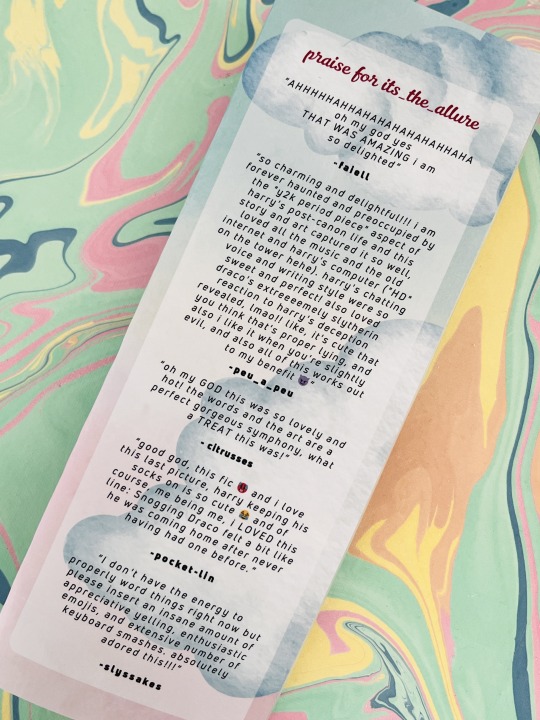 praise for its_the_allure
"AHHHHHAHHAHAHAHAHAHAHHAHA
oh my god yes
THAT WAS AMAZING i am
so delighted"
-faiell
"so charming and delightful!!! i am
forever haunted and preoccupied by
the "y2k period piece" aspect of
harry's post-canon life and this
story and art captured it so well,
loved all the music and the old
internet and harry's computer ("HD"
on the tower hehe). harry's chatting
voice and writing style were so
sweet and perfect! also loved
draco's extreeeemely slytherin
reaction to harry's deception
revealed, lmao!! like, it's cute that
you think that's proper lying, and
also i like it when you're slightly
evil, and also all of this works out
to my benefit 😈"
-peu_a_peu
"oh my GOD this was so lovely and
hot! the words and the art are a
perfect gorgeous symphony, what
a TREAT this was!"
- citrusses
"good god, this fic 🥵 and i love
this last picture, harry keeping his
socks on is so cute 😂 and of
course, me being me, i LOVED this
line: Snogging Draco felt a bit like
he was coming home after never
having had one before."
-pocket-lin
"i don't have the energy to
properly word things right now but
please insert an insane amount of
appreciative yelling, enthusiastic
emojis, and extensive number of
keyboard smashes. absolutely
adored this!!!"
-slyssakes